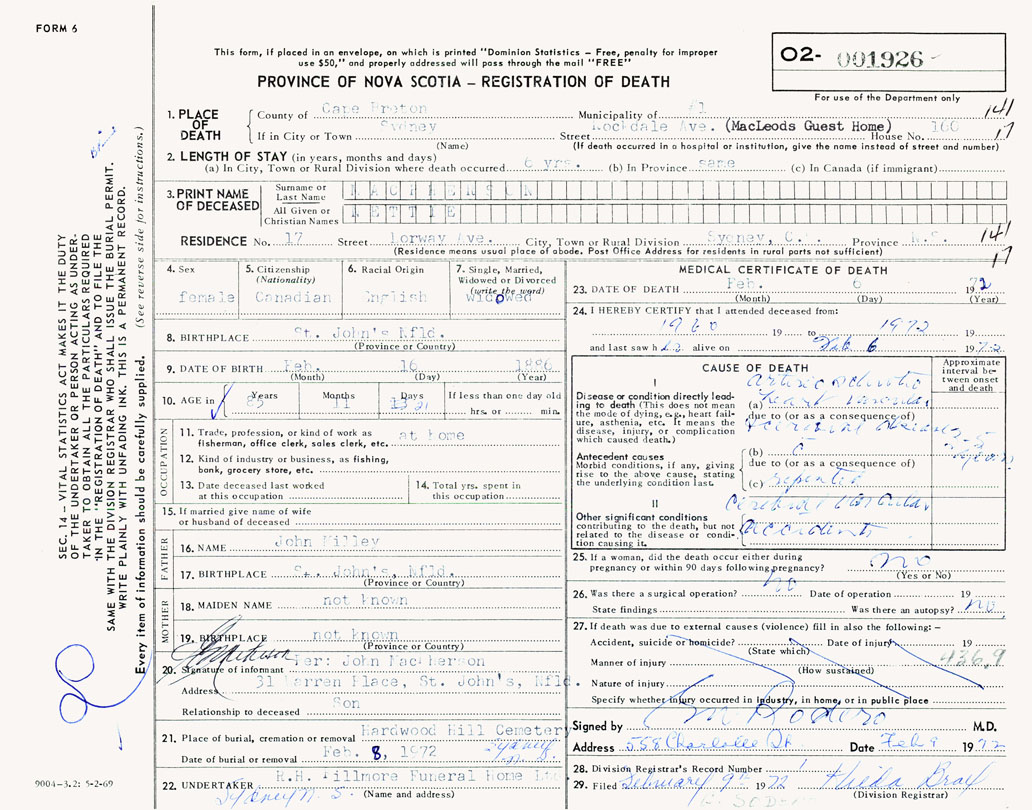 FORM 6
This form, if placed in an envelope, on which is printed "Dominion Statistics – Free, penalty for improper
use $50," and properly addressed will pass through the mail "FREE"
PROVINCE OF NOVA SCOTIA – REGISTRATION OF DEATH
O2- 001926
For use of the Department only
1. PLACE OF DEATH
County of Cape Breton Municipality of #1
If in City or Town Sydney Street Rockdale Ave. (MacLeods Guest Home) House No. 160
(Name) (If death occurred in a hospital or institution, give the name instead of street and number)
141
17
2. LENGTH OF STAY (in years, months and days)
(a) In City, Town or Rural Division where death occurred 6 yrs. (b) In Province same (c) In Canada (if immigrant)
3. PRINT NAME OF DECEASED
Surname or Last Name MACPHERSON
All Given or Christian Names NETTIE
RESIDENCE No. 17 Street Lorway Ave. City, Town or Rural Division Sydney, C. Province N.S.
(Residence means usual place of abode. Post Office Address for residents in rural parts not sufficient)
141
17
4. Sex female
5. Citizenship (Nationality) Canadian
6. Racial Origin English
7. Single, Married, Widowed or Divorced (write the word) widowed
8. BIRTHPLACE St. John's Nfld.
(Province or Country)
9. DATE OF BIRTH Feb. 16 1886
(Month) (Day) (Year)
10. AGE in Years 85 Months 11 Days 21 If less than one day old hrs. or min.
OCCUPATION
11. Trade, profession, or kind of work as fisherman, office clerk, sales clerk, etc. at home
12. Kind of industry or business, as fishing, bank, grocery store, etc.
13. Date deceased last worked at this occupation
14. Total yrs. spent in this occupation
15. If married give name of wife or husband of deceased
FATHER
16. NAME John Milley
17. BIRTHPLACE St. John's, Nfld.
(Province or Country)
MOTHER
18. MAIDEN NAME not known
19. BIRTHPLACE not known
(Province or Country)
20. Signature of informant Per: John MacPherson
Address 31 Warren Place, St. John's, Nfld.
Relationship to deceased Son
21. Place of burial, cremation or removal Hardwood Hill Cemetery
Date of burial or removal Feb. 8, 1972 Sydney N.S.
22. UNDERTAKER H.H. Fillmore Funeral Home Ltd
Sydney N.S. (Name and address)
MEDICAL CERTIFICATE OF DEATH
23. DATE OF DEATH Feb. 6 1972
(Month) (Day) (Year)
24. I HEREBY CERTIFY that I attended deceased from:
1960 19 to 1972 19
and last saw h alive on Feb 6 1972
CAUSE OF DEATH
Approximate interval between onset and death
I
Disease or condition directly leading to death (This does not mean the mode of dying, e.g., heart failure, asthenia, etc. It means the disease, injury, or complication which caused death.)
(a) heart
due to (or as a consequence of)
Antecedent causes
Morbid conditions, if any, giving rise to the above cause, stating the underlying condition last.
(b)
due to (or as a consequence of)
(c) repeated
II
Other significant conditions contributing to the death, but not related to the disease or condition causing it.
Cerebral Vascular
accidents
25. If a woman, did the death occur either during pregnancy or within 90 days following pregnancy? no
(Yes or No)
26. Was there a surgical operation? no Date of operation 19
State findings Was there an autopsy? no
27. If death was due to external causes (violence) fill in also the following:–
Accident, suicide or homicide? Date of injury 19
(State which)
436.9
Manner of injury
(How sustained)
Nature of injury
Specify whether injury occurred in industry, in home, or in public place
Signed by M.D.
Address 558 Charlotte St. Date Feb 9 1972
28. Division Registrar's Record Number
29. Filed February 9th 1972 Hilda Bray
(Division Registrar)
SEC. 14 – VITAL STATISTICS ACT MAKES IT THE DUTY
OF THE UNDERTAKER OR PERSON ACTING AS UNDER-
TAKER TO OBTAIN ALL THE PARTICULARS REQUIRED
IN THE "REGISTRATION OF DEATH" AND TO FILE THE
SAME WITH THE DIVISION REGISTRAR WHO SHALL ISSUE THE BURIAL PERMIT.
WRITE PLAINLY WITH UNFADING INK. THIS IS A PERMANENT RECORD.
Every item of information should be carefully supplied. (See reverse side for instructions.)
9004-3.2: 5-2-69